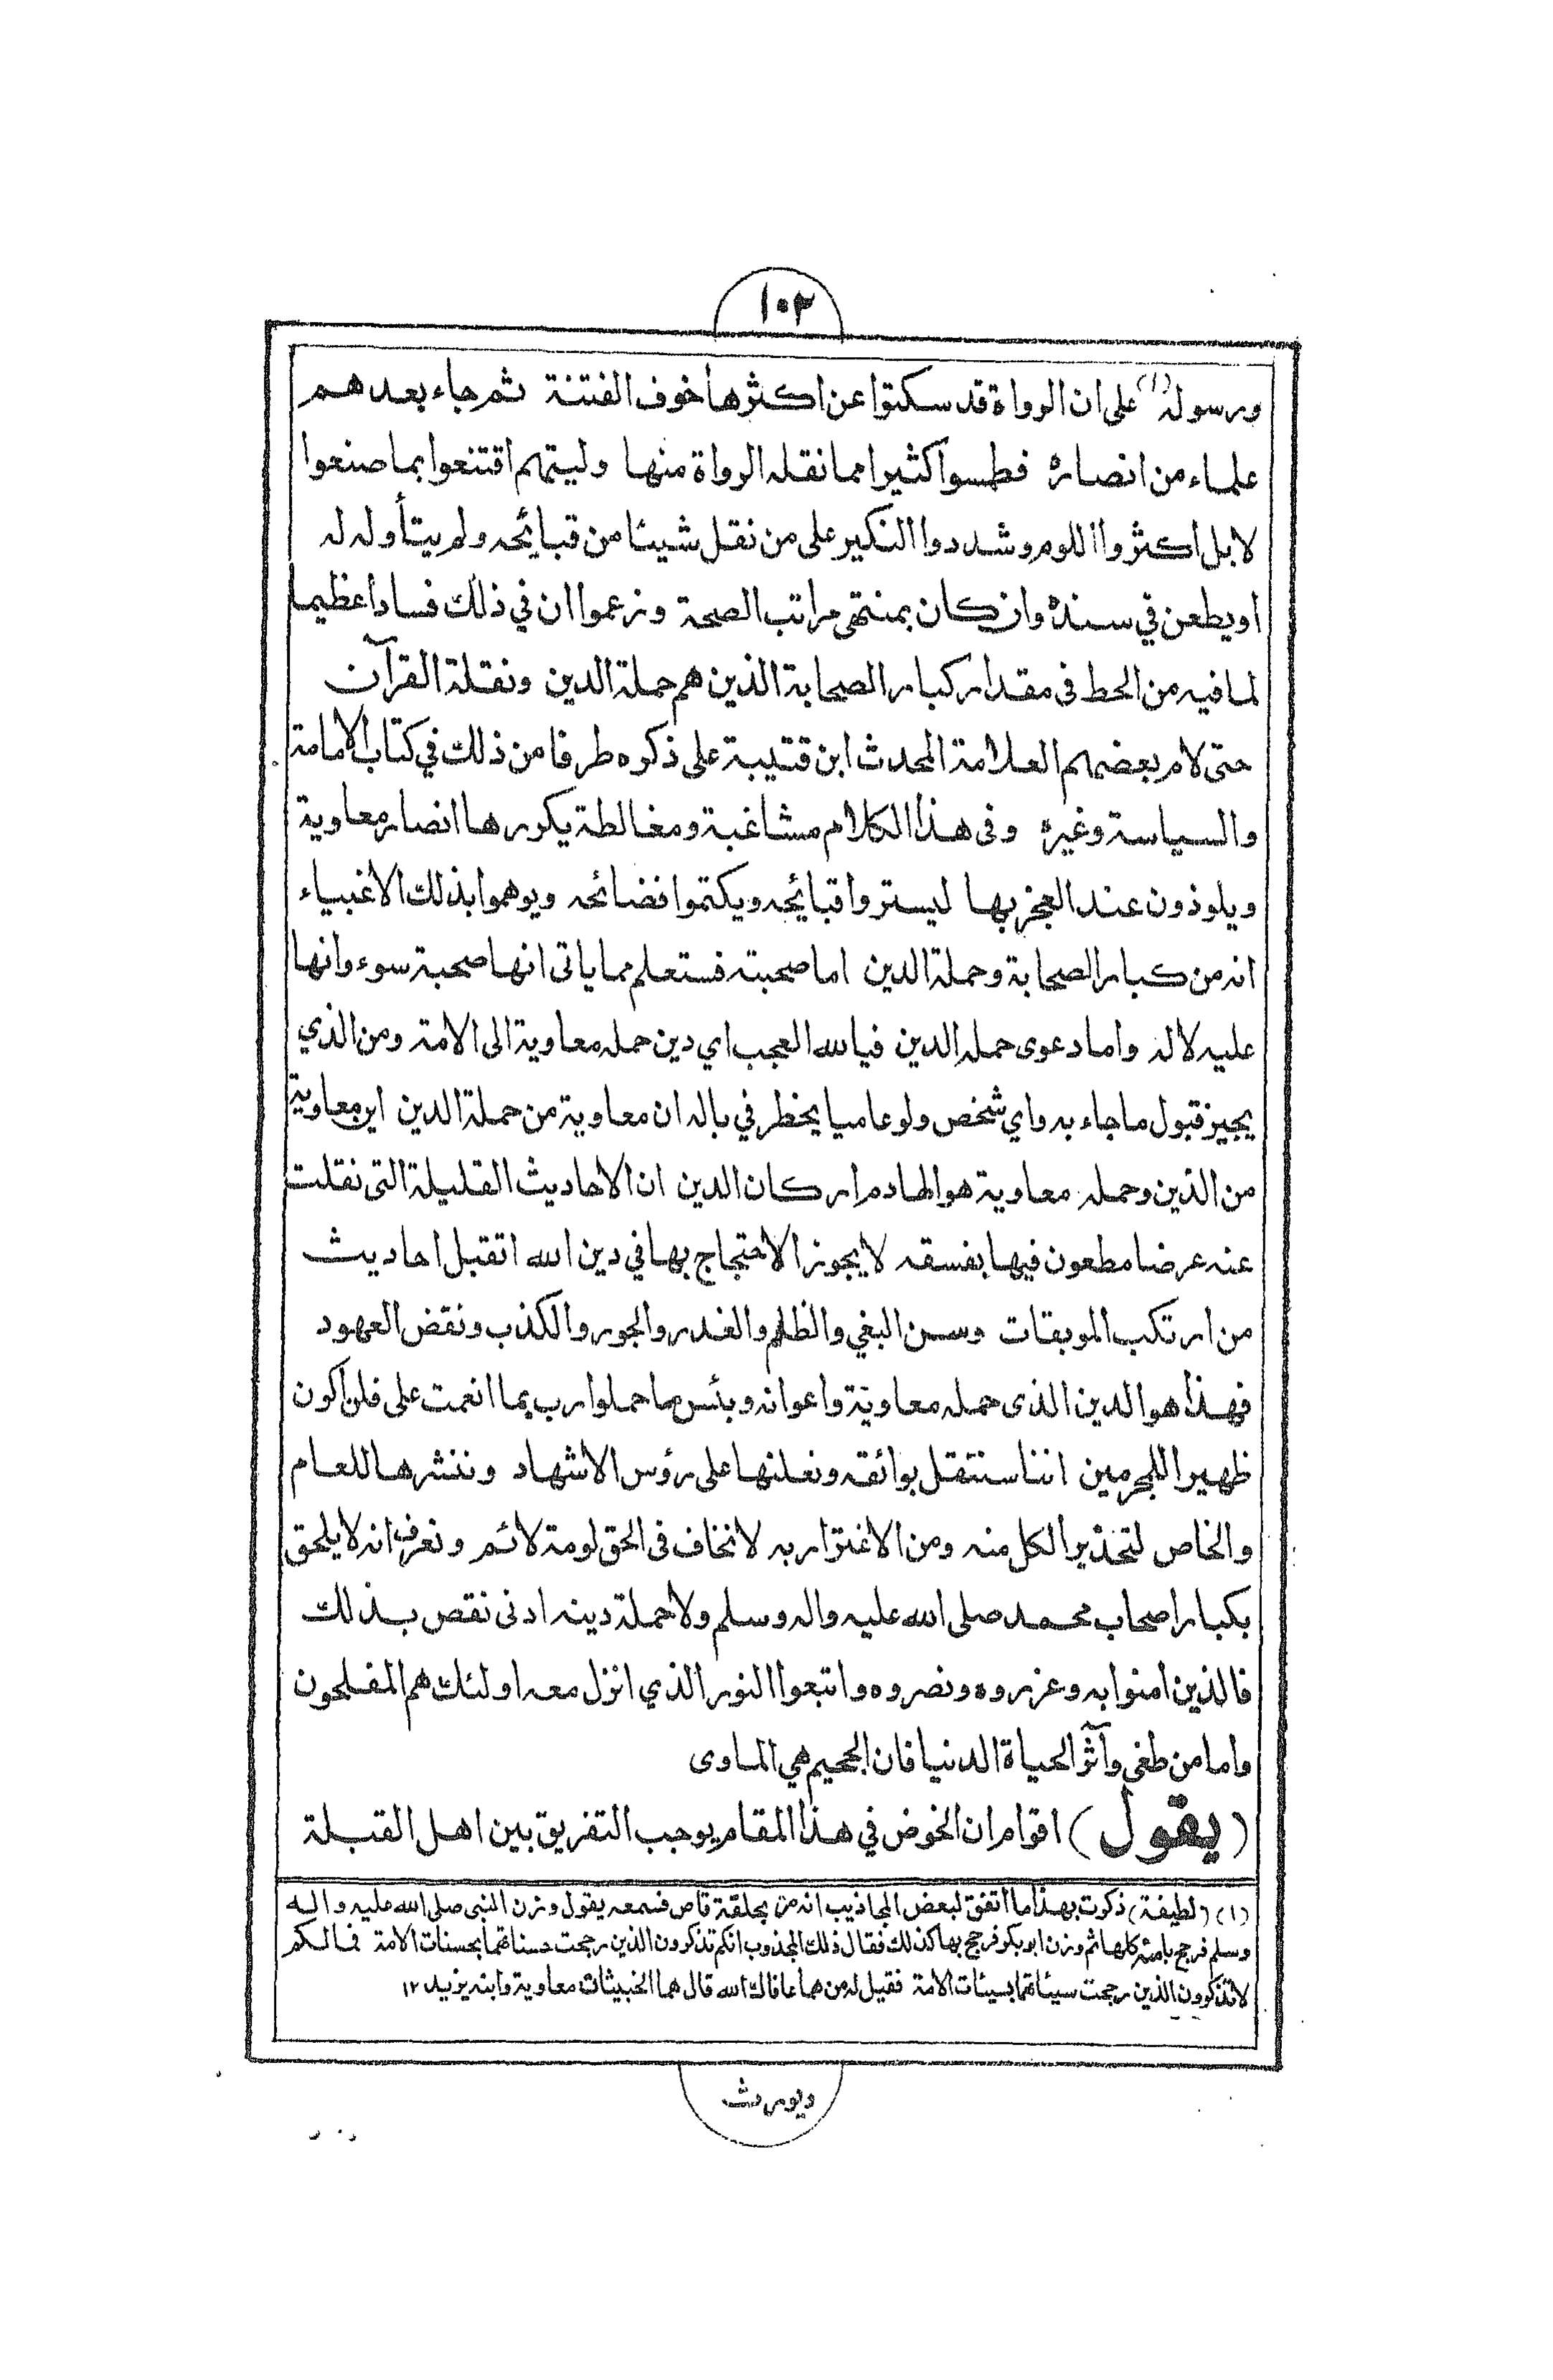 ١٠٣
ورسوله (١) على ان الرواة قد سكتوا عن اكثرها خوف الفتنة ثم جاء بعدهم
علماء من انصاره فطمسوا كثيرا مما نقله الرواة منها وليتهم اقتنعوا بما صنعوا
لا بل اكثروا اللوم وشددوا النكير على من نقل شيئا من قبائحه ولم يتأوله له
او يطعن في سنده وان كان بمنتهى مراتب الصحة وزعموا ان في ذلك فسادا عظيما
لما فيه من الحط فى مقدار كبار الصحابة الذين هم حملة الدين ونقلة القرآن
حتى لام بعضهم العلامة المحدث ابن قتيبة على ذكره طرفا من ذلك في كتاب الامامة
والسياسة وغيره وفى هذا الكلام مشاغبة ومغالطة يكررها انصار معاوية
ويلوذون عند العجز بها ليستروا قبائحه ويكتموا فضائحه ويوهموا بذلك الاغبياء
انه من كبار الصحابة وحملة الدين اما صحبته فستعلم مما ياتى انها صحبة سوء وانها
عليه لا له واما دعوى حمله الدين فيالله العجب اي دين حمله معاوية الى الامة ومن الذي
يجيز قبول ما جاء به واي شخص ولو عاميا يخطر في باله ان معاوية من حملة الدين اين معاوية
من الدين وحمله معاوية هو الهادم اركان الدين ان الاحاديث القليلة التى نقلت
عنه عرضا مطعون فيها بفسقه لا يجوز الاحتجاج بها في دين الله اتقبل احاديث
من ارتكب الموبقات وسن البغي والظلم والغدر والجور والكذب ونقض العهود
فهذا هو الدين الذى حمله معاوية واعوانه وبئس ما حملوا رب بما انعمت على فلن اكون
ظهيرا للمجرمين اننا سننقل بوائقه ونعلنها على رؤس الاشهاد وننشرها للعام
والخاص لتحذير الكل منه ومن الاغترار به لا نخاف فى الحق لومة لائم ونعرف انه لا يلحق
بكبار اصحاب محمد صلى الله عليه واله وسلم ولا حملة دينه ادنى نقص بذلك
فالذين امنوا به وعزروه ونصروه واتبعوا النور الذي انزل معه اولئك هم المفلحون
واما من طغى وآثر الحياة الدنيا فان الجحيم هي الماوى
(يقول) اقوام ان الخوض في هذا المقام يوجب التفريق بين اهل القبلة
(١) (لطيفة) ذكرت بهذا ما اتفق لبعض المجاذيب انه مر بحلقة قاص فسمعه يقول وزن النبى صلى الله عليه واله
وسلم فرجح بامته كلها ثم وزن ابوبكر فرجح بها كذلك فقال ذلك المجذوب انكم تذكرون الذين رجحت حسناتهما بحسنات الامة فمالكم
لا تذكرون الذين رجحت سيئاتهما بسيئات الامة فقيل له من هما عافاك الله قال هما الخبيثان معاوية وابنه يزيد ١٢
ويورث